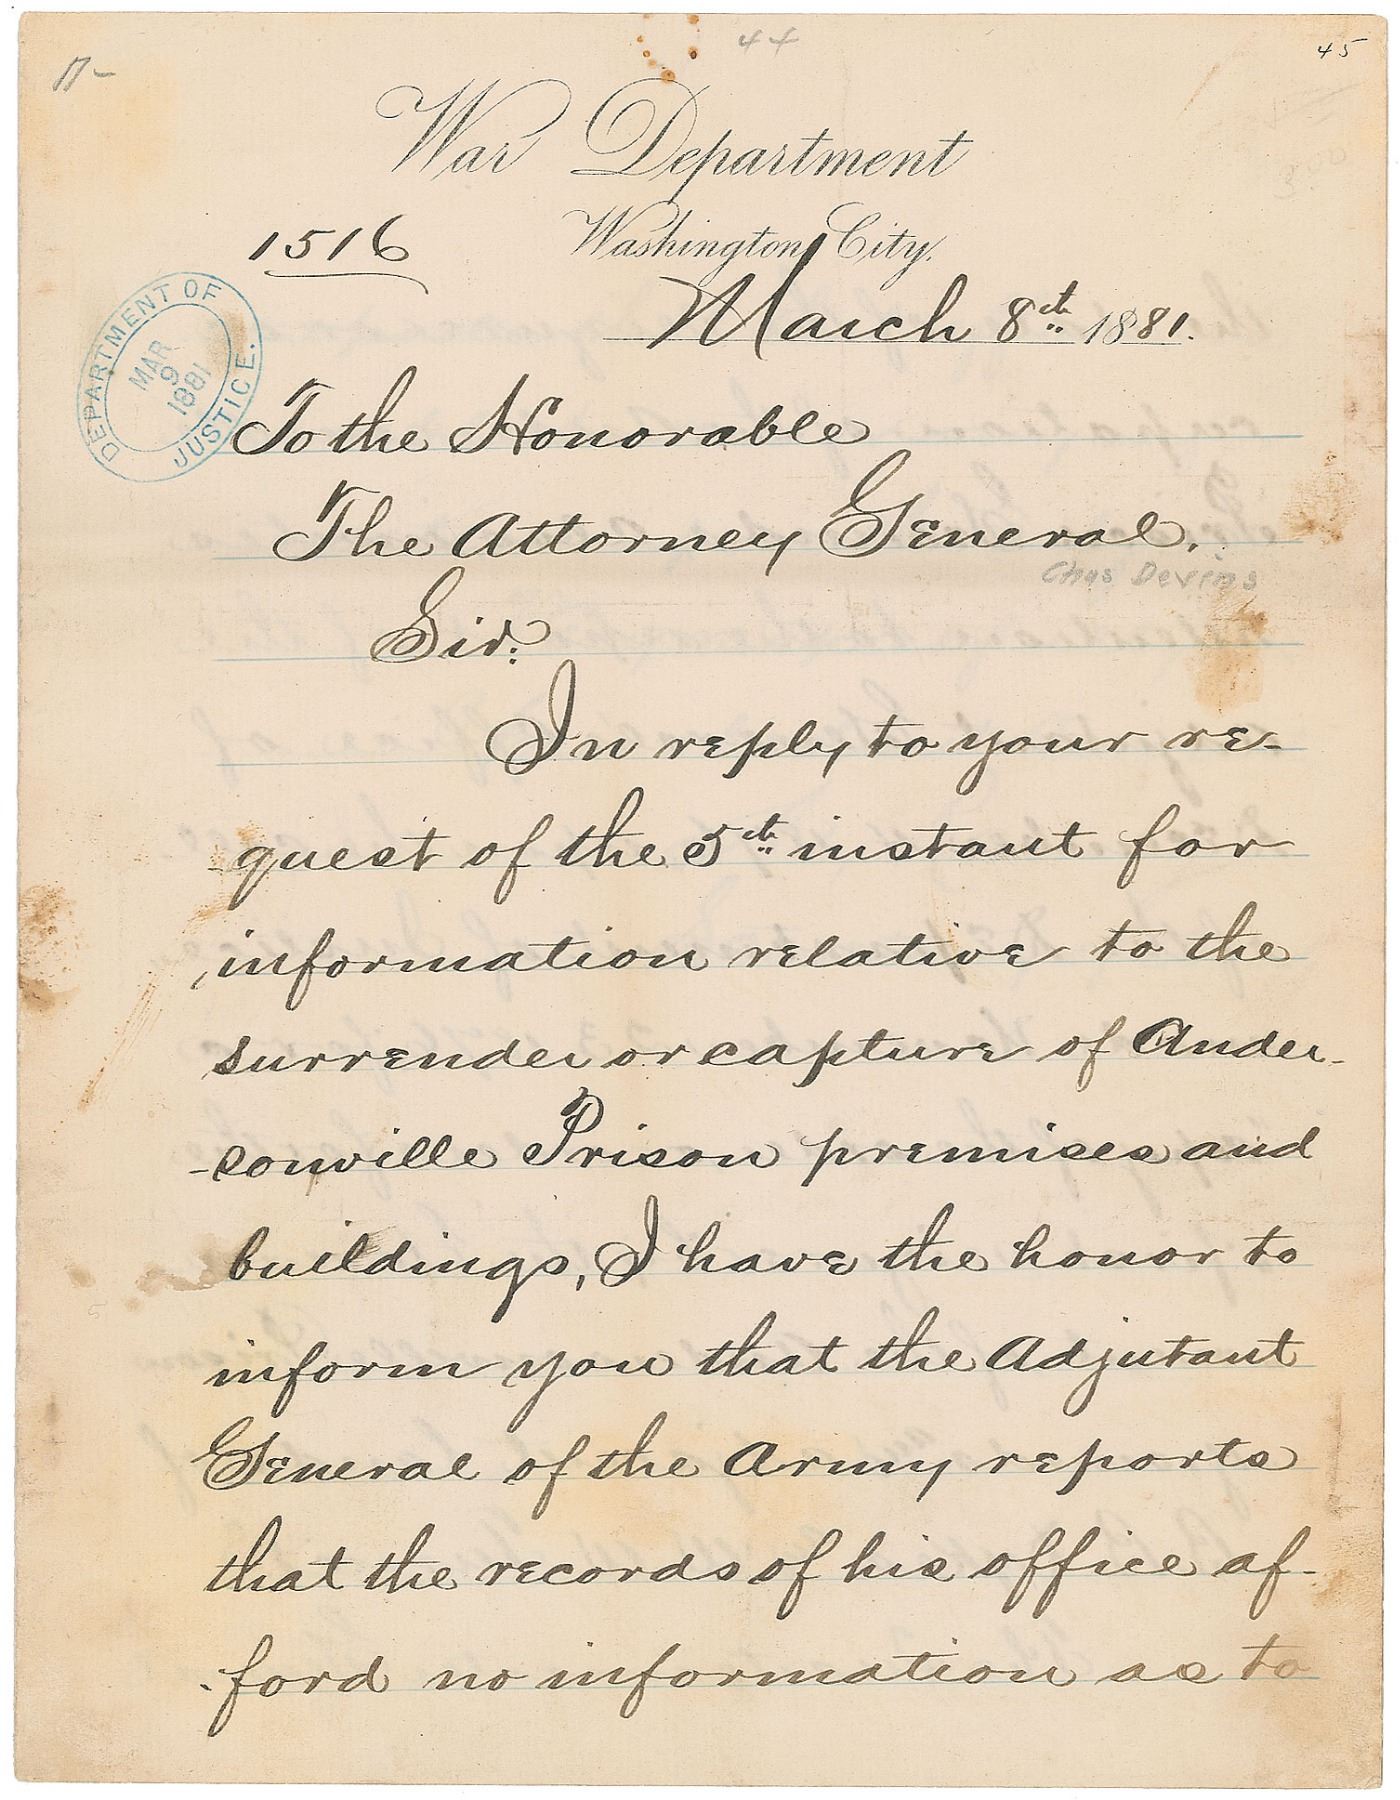 44
45
War Department
1516
Washington City.
March 8th 1881.
DEPARTMENT OF JUSTICE.
MAR
9
1881
To the Honorable
The Attorney General.
Chas Devens
Sir:
In reply to your re-
quest of the 5th instant for
information relative to the
surrender or capture of Ander-
-sonville Prison premises and
buildings, I have the honor to
inform you that the Adjutant
General of the Army reports
that the records of his office af-
-ford no information as to